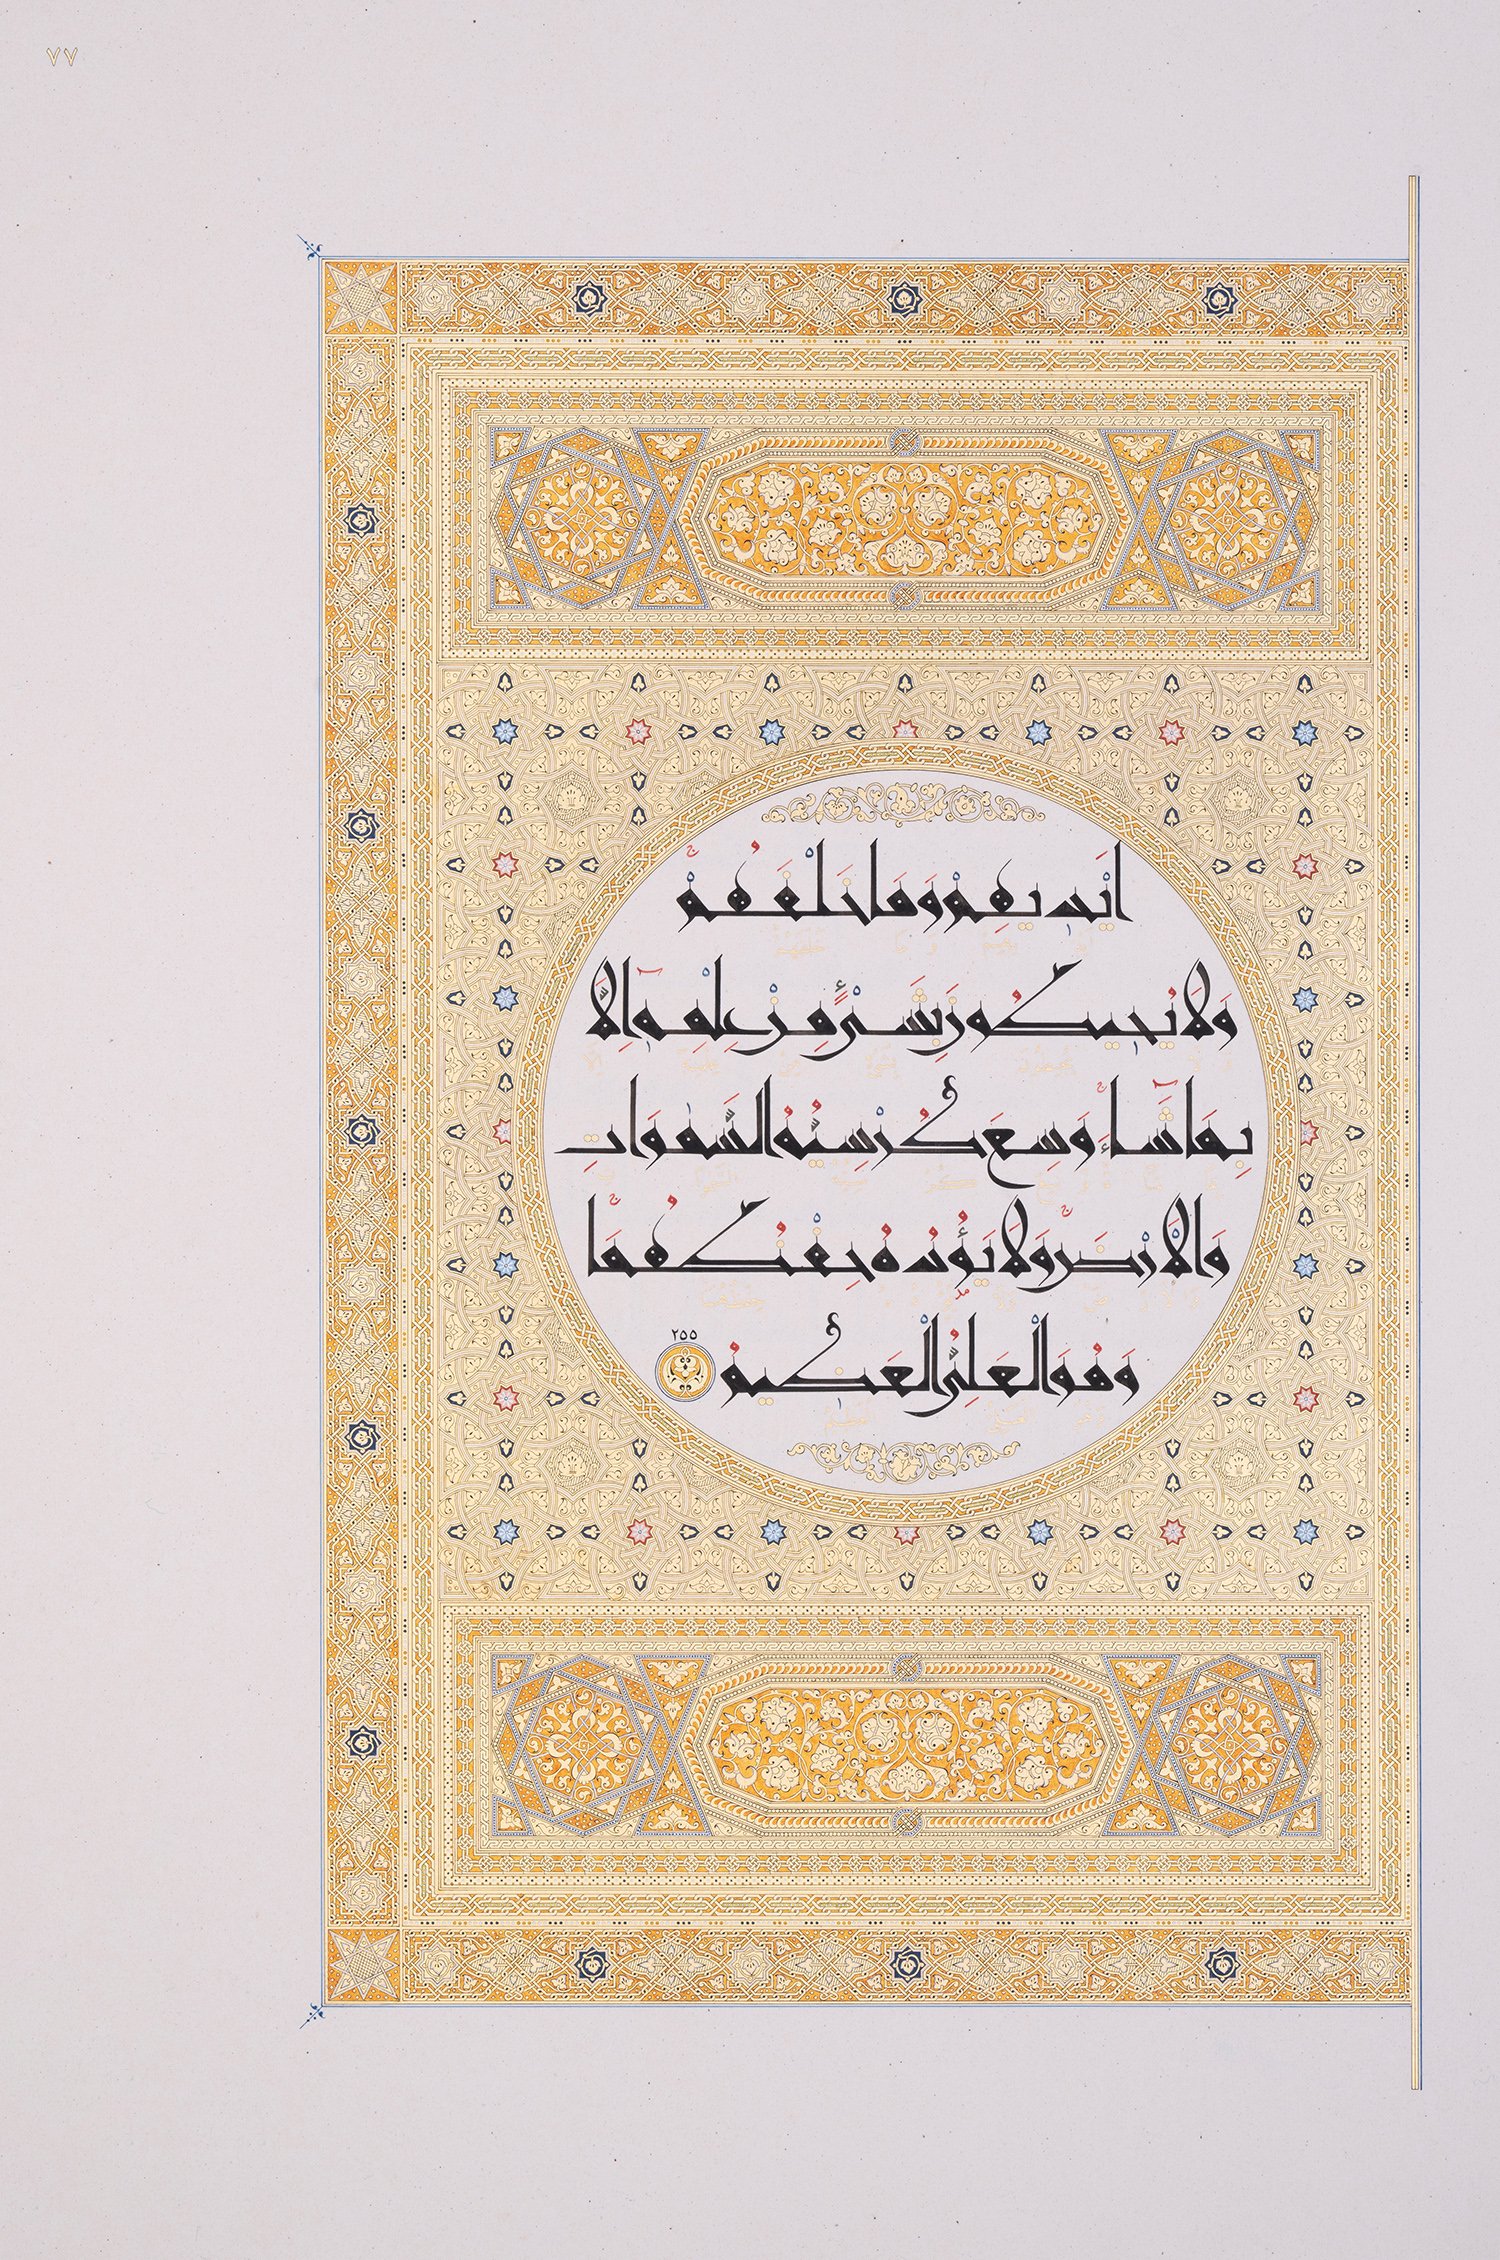 ٧٧
أَيْدِيهِمْ وَمَا خَلْفَهُمْ
وَلَا يُحِيطُونَ بِشَيْءٍ مِنْ عِلْمِهِ إِلَّا
بِمَا شَاءَ وَسِعَ كُرْسِيُّهُ السَّمٰوَاتِ
وَالْأَرْضَ وَلَا يَؤُدُهُ حِفْظُهُمَا
وَهُوَ الْعَلِيُّ الْعَظِيمُ ٢٥٥